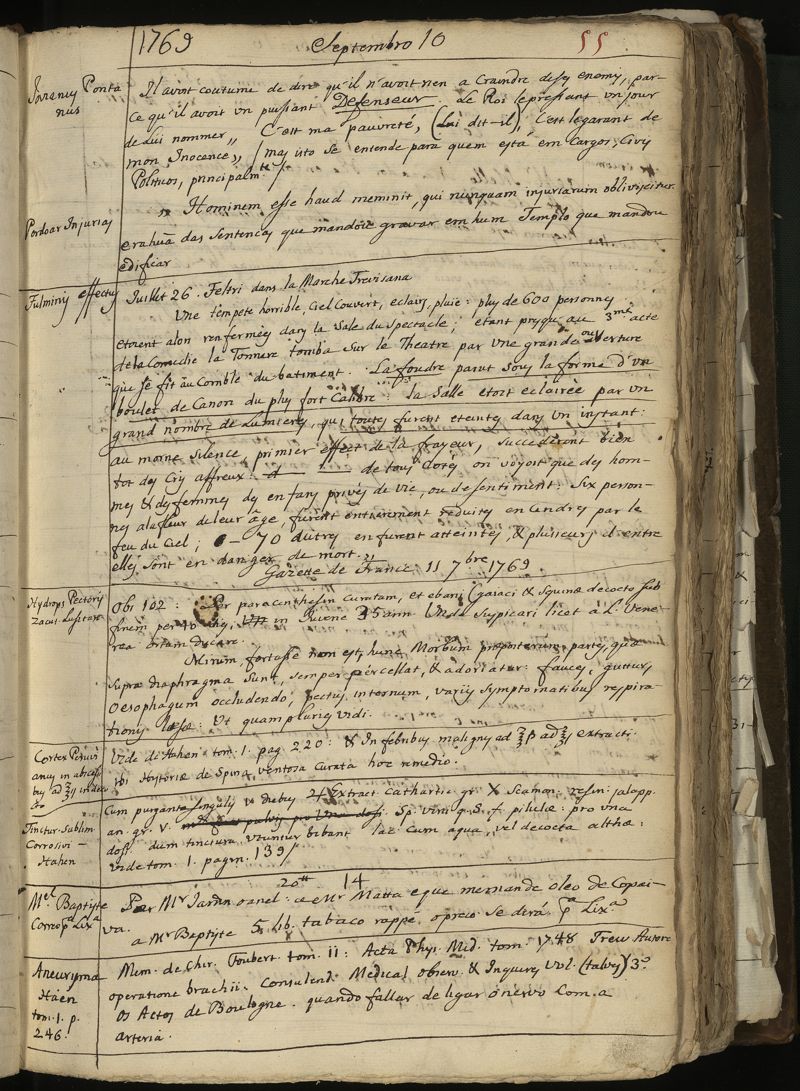 1769 Septembro 10 55
Joviany Ponta
nus
Il avoit coutume de dire qu'il n'avoit rien a Craindre desey enemy, par-
Ce qu'il avoit un puissant Defenseur. Le Roi le pressant un jour
de Lui nommer,, C'est ma pauvreté, (Lui dit-il), C'est legarant de
mon Inocence,, (may isto se entende para quem está em Cargos, Civiy
Polituos, principalm.te)
Perdoar Injuriay
,, Hominem esse haud meminit, qui nunquam injuriarum obliviscitur.
era huã das Sentencay que mandou gravar em hum Templo que mandou
edificar
Fulminiy effectuy
Juillet 26. Feltri dans la Marche Trevisana
Une têmpete horrible, Ciel Couvert, eclairy, pluie: pluy de 600 personney
etoient alon renfermèey dany la Sale du Spectacle; etant presqu'au 3.me acte
de la Comedie la Tonnere tomba Sur le Theatre par une grande ouverture
que se fit au Comble du batiment. La foudre parut Souy la forme d'un
boulet de Canon du pluy fort Calibre: la Salle etoit eclairèe par un
grand nombre de Lumierey, qui toutey furent eteintey dany un instant:
au morne Silence, premier effect de la frayeur, succederent bien
tot dey Criy affreux: de touy Cotèy on voyoit que dey hom-
mey & dy femmey dy enfany privéy de vie, ou de sentiment: Six person-
ney alafleur deleur âge, furent entierement reduitey en Cendrey par le
feu du Ciel; 70 dutrey en furent atteintey, & plusieury d'entre
elley Sont en danger de mort.
Gazette de France, 11 7bre 1769
Hydrops Pectoriy
Zacut. Lusitan.
Obs 102: Per paracenthesin curatam, et ebani Gaiaci & Squinæ decocto sub
finem per 40 diey, in Juvene 35 ann. Unde Suspicari licet à L. Vene-
rea ortam ducere.
Mirum, fortasse non est, hunc Morbum propterum partey, quæ
Supra diaphragma Sunt, semper percellat, & adoriatur: faucey, guttury
Oesophagum occludendo, pectuy internum, variiy Symptomatibuy respira-
tioniy læsæ: Ut quam pluriey vidi.
Cortex Peruvi
anuy in abscessi
buy ad ℥ij in dec
cto
Vide de Hahen. tom. 1. pag 220: & In febribuy maligny ad ℥β ad ℥j extracti.
ibi Hystoriæ de Spina, ventosa Curata hoc remedio.
Tinctur. Sublim.
Corrosivi -
Hahen
Cum purgante Singuliy v diebuy ♃ Extract Cathartic gr. X Scamon. resin: jalapp.
an. gr. V. Sp. vini q.S. f. pilulæ: pro una
dosi. dum tinctura, utuntur bibant lac. Cum aqua, vel decocta altheæ:
vide tom. 1. pagin. 139/
M.el Baptyste
Correo p.a Lix.a
20tt 14
Per M.r Jardin oanel: a e Mr Matta e que me mande oleo de Copai-
va. a Mr Baptyste 5 lib. tabaco rappé. opreço se dirá p.a Lix.a
Aneurysma
Häen
tom. 1. p.
246.
Mem. de Chir. Foubert. tom. II: Acta Phys. Med. tom. 1748 Trew Autore
operatione brachii. Consulend Medical observ. & Inquirey Vol. (talvey) 3.o
Os Actos de Boulogne. quando fallar de ligar o nervo Com a
arteria.